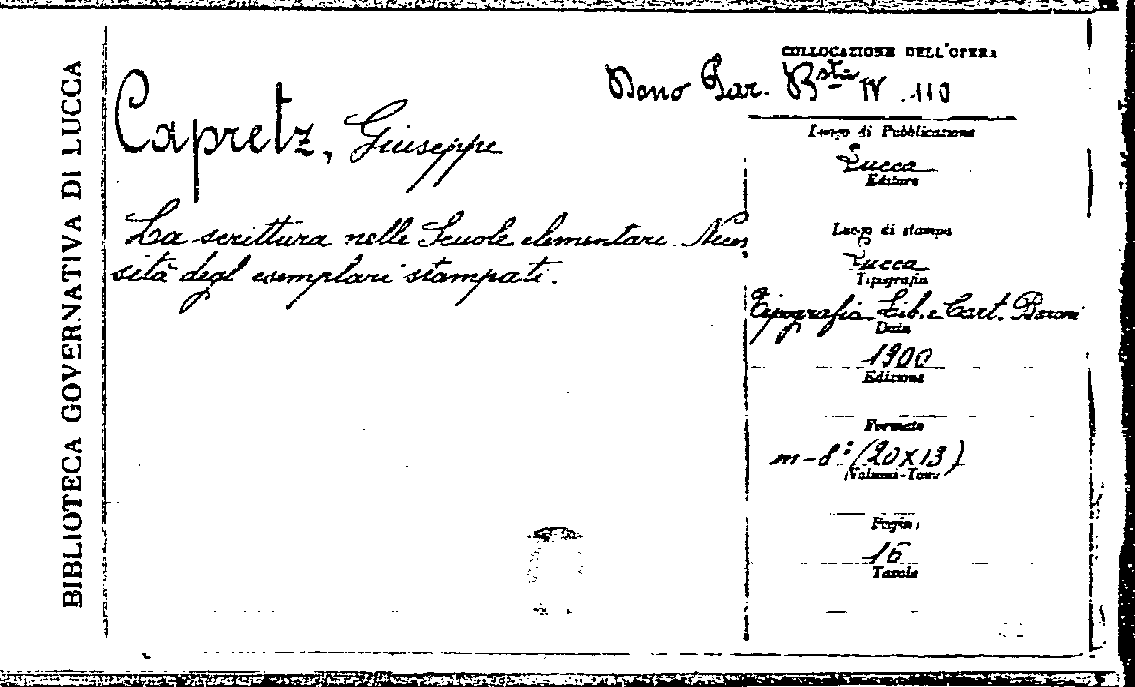 BIBLIOTECA GOVERNATIVA DI LUCCA
Capretz, Giuseppe
La scrittura nelle Scuole elementari. Neces
sità degl esemplari stampati.
COLLOCAZIONE DELL'OPERA
Dono Bar. Bsta IV. 110
Luogo di Pubblicazione
Lucca
Editore
Luogo di stampa
Lucca
Tipografia
Tipografia Lib. e Cart. Baroni
Data
1900
Edizione
Formato
m-8° (20x13)
Volume-Tomo
Pagine
16
Tavole